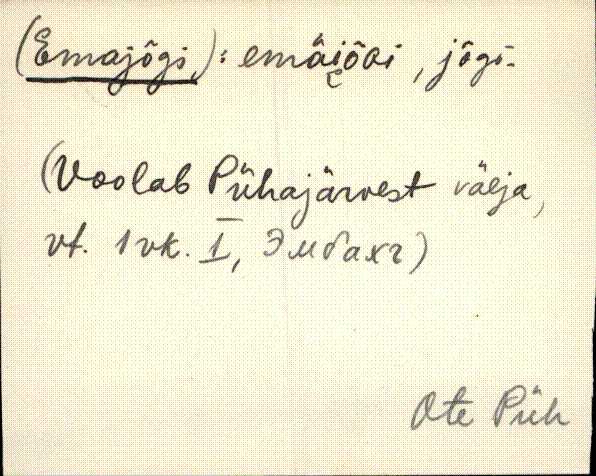 (Emajõgi): emäi̯õGi, jõgi.
(Voolab Pühajärvest välja,
vt. 1 vk. I, Эмбахъ)
Ote Püh